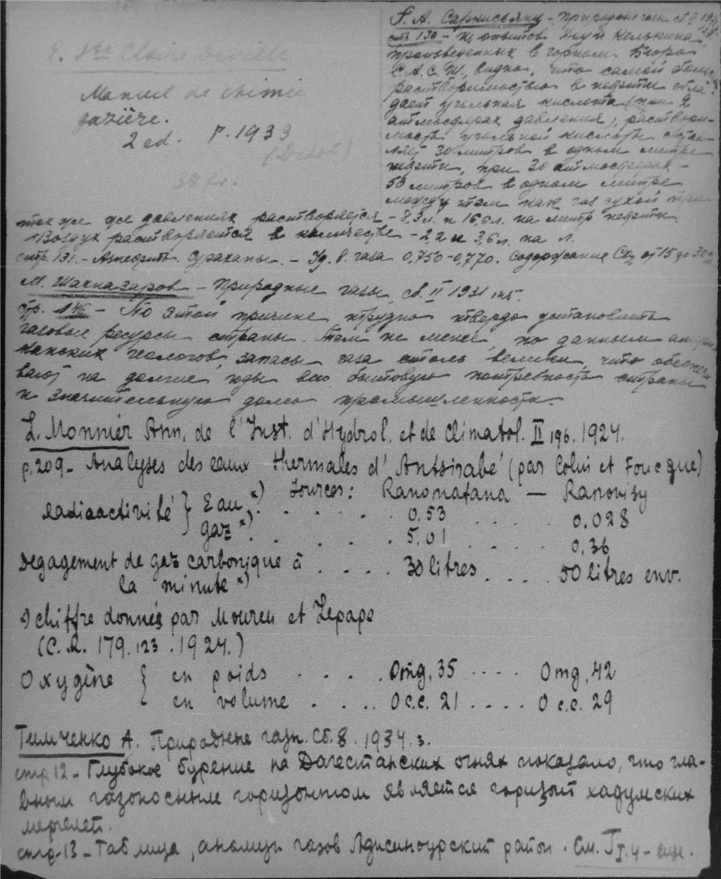 E. Ste Claire Deville
Manuel de chimie
gazière.
2 ed. P. 1933
Г. А. Саркисьянц - Природные газы сб. II 193
стр. 130 - Из опытов Доу и Келькина
произведенных в горном Бюро
С.А.С.Ш, видно, что самой боль
растворимостью в нефти обла
дает угольная кислота (при 2
атмосферах давления), раствори-
мость угольной кислоты состав
ляет 30 литров в одном литре
нефти, при 36 атмосферах -
53 литров в одном литре
между тем как газ сухой при
тех же давлениях растворяется - 8,3 л. и 16,6 л. на литр нефти
Воздух растворяется в количестве - 2,2 и 3,6 л. на л.
стр. 131. - Азнефть Сураханы. - Уд. в. газа 0,750-0,770. Содержание от 15 до 30
М. Шахназаров - Природные газы, сб. II 1931
Стр. - По этой причине трудно твердо установить
газовые ресурсы страны. Тем не менее, по данным
геологов, запасы газа столь велики, что обеспечи
вают на долгие годы всю бытовую потребность страны
и значительную долю промышленности.
L. Monnier Ann. de l'Inst. d'Hydrol. et de Climatol. II 196. 1924.
p. 209 - Analyses des eaux thermales d'Antsirabé (par Colin et Foucque)
Sources: Ranomafana — Ranovisy
Radioactivité { Eau *) . . . . 0,53 . . . . 0,028
gaz *) . . . . 5,01 . . . . 0,36
Degagement de gaz carbonique à
la minute *) . . . . 30 litres . . . . 50 litres env.
*) chiffre donnés par Moureu et Lepape
(C.R. 179.123.1924.)
Oxygène { en poids . . . . 0 mg, 35 . . . . 0 mg, 42
en volume . . . . 0 c.c. 21 . . . . 0 c.c. 29
Тимченко А. Природные газы. Сб. 8. 1934. 3.
стр 12 - Глубокое бурение на Дагестанских огнях показало, что гла-
вным газоносным горизонтом является горизонт хадумских
мергелей.
стр. 13 - Таблица, анализы газов район. См.